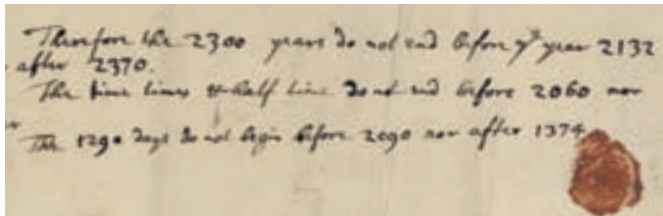 Therefore the 2300 years do not end before yᵉ year 2132
after 2370.
The time times & half time do not end before 2060 nor
The 1290 days do not begin before 2090 nor after 1374